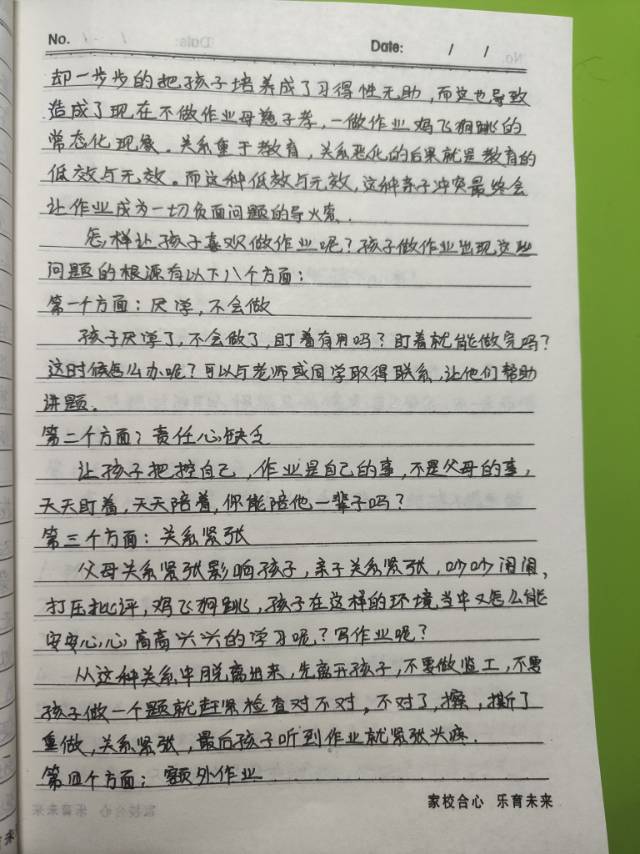 No.
Date: / /
却一步步的把孩子培养成了习得性无助,而这也导致
造成了现在不做作业母慈子孝,一做作业鸡飞狗跳的
常态化现象。关系重于教育,关系恶化的后果就是教育的
低效与无效。而这种低效与无效,这种亲子冲突最终会
让作业成为一切负面问题的导火索.
怎样让孩子喜欢做作业呢?孩子做作业出现这些
问题的根源有以下八个方面:
第一个方面:厌学,不会做
孩子厌学了,不会做了,盯着有用吗?盯着就能做完吗?
这时候怎么办呢?可以与老师或同学取得联系,让他们帮助
讲题.
第二个方面:责任心缺乏
让孩子把控自己,作业是自己的事,不是父母的事,
天天盯着,天天陪着,你能陪他一辈子吗?
第三个方面:关系紧张
父母关系紧张影响孩子,亲子关系紧张,吵吵闹闹,
打压批评,鸡飞狗跳,孩子在这样的环境当中又怎么能
安安心心高高兴兴的学习呢?写作业呢?
从这种关系中脱离出来,先离开孩子,不要做监工,不要
孩子做一个题就赶紧检查对不对,不对了,擦,撕了
重做,关系紧张,最后孩子听到作业就紧张头疼.
第四个方面:额外作业
家校合心 乐育未来